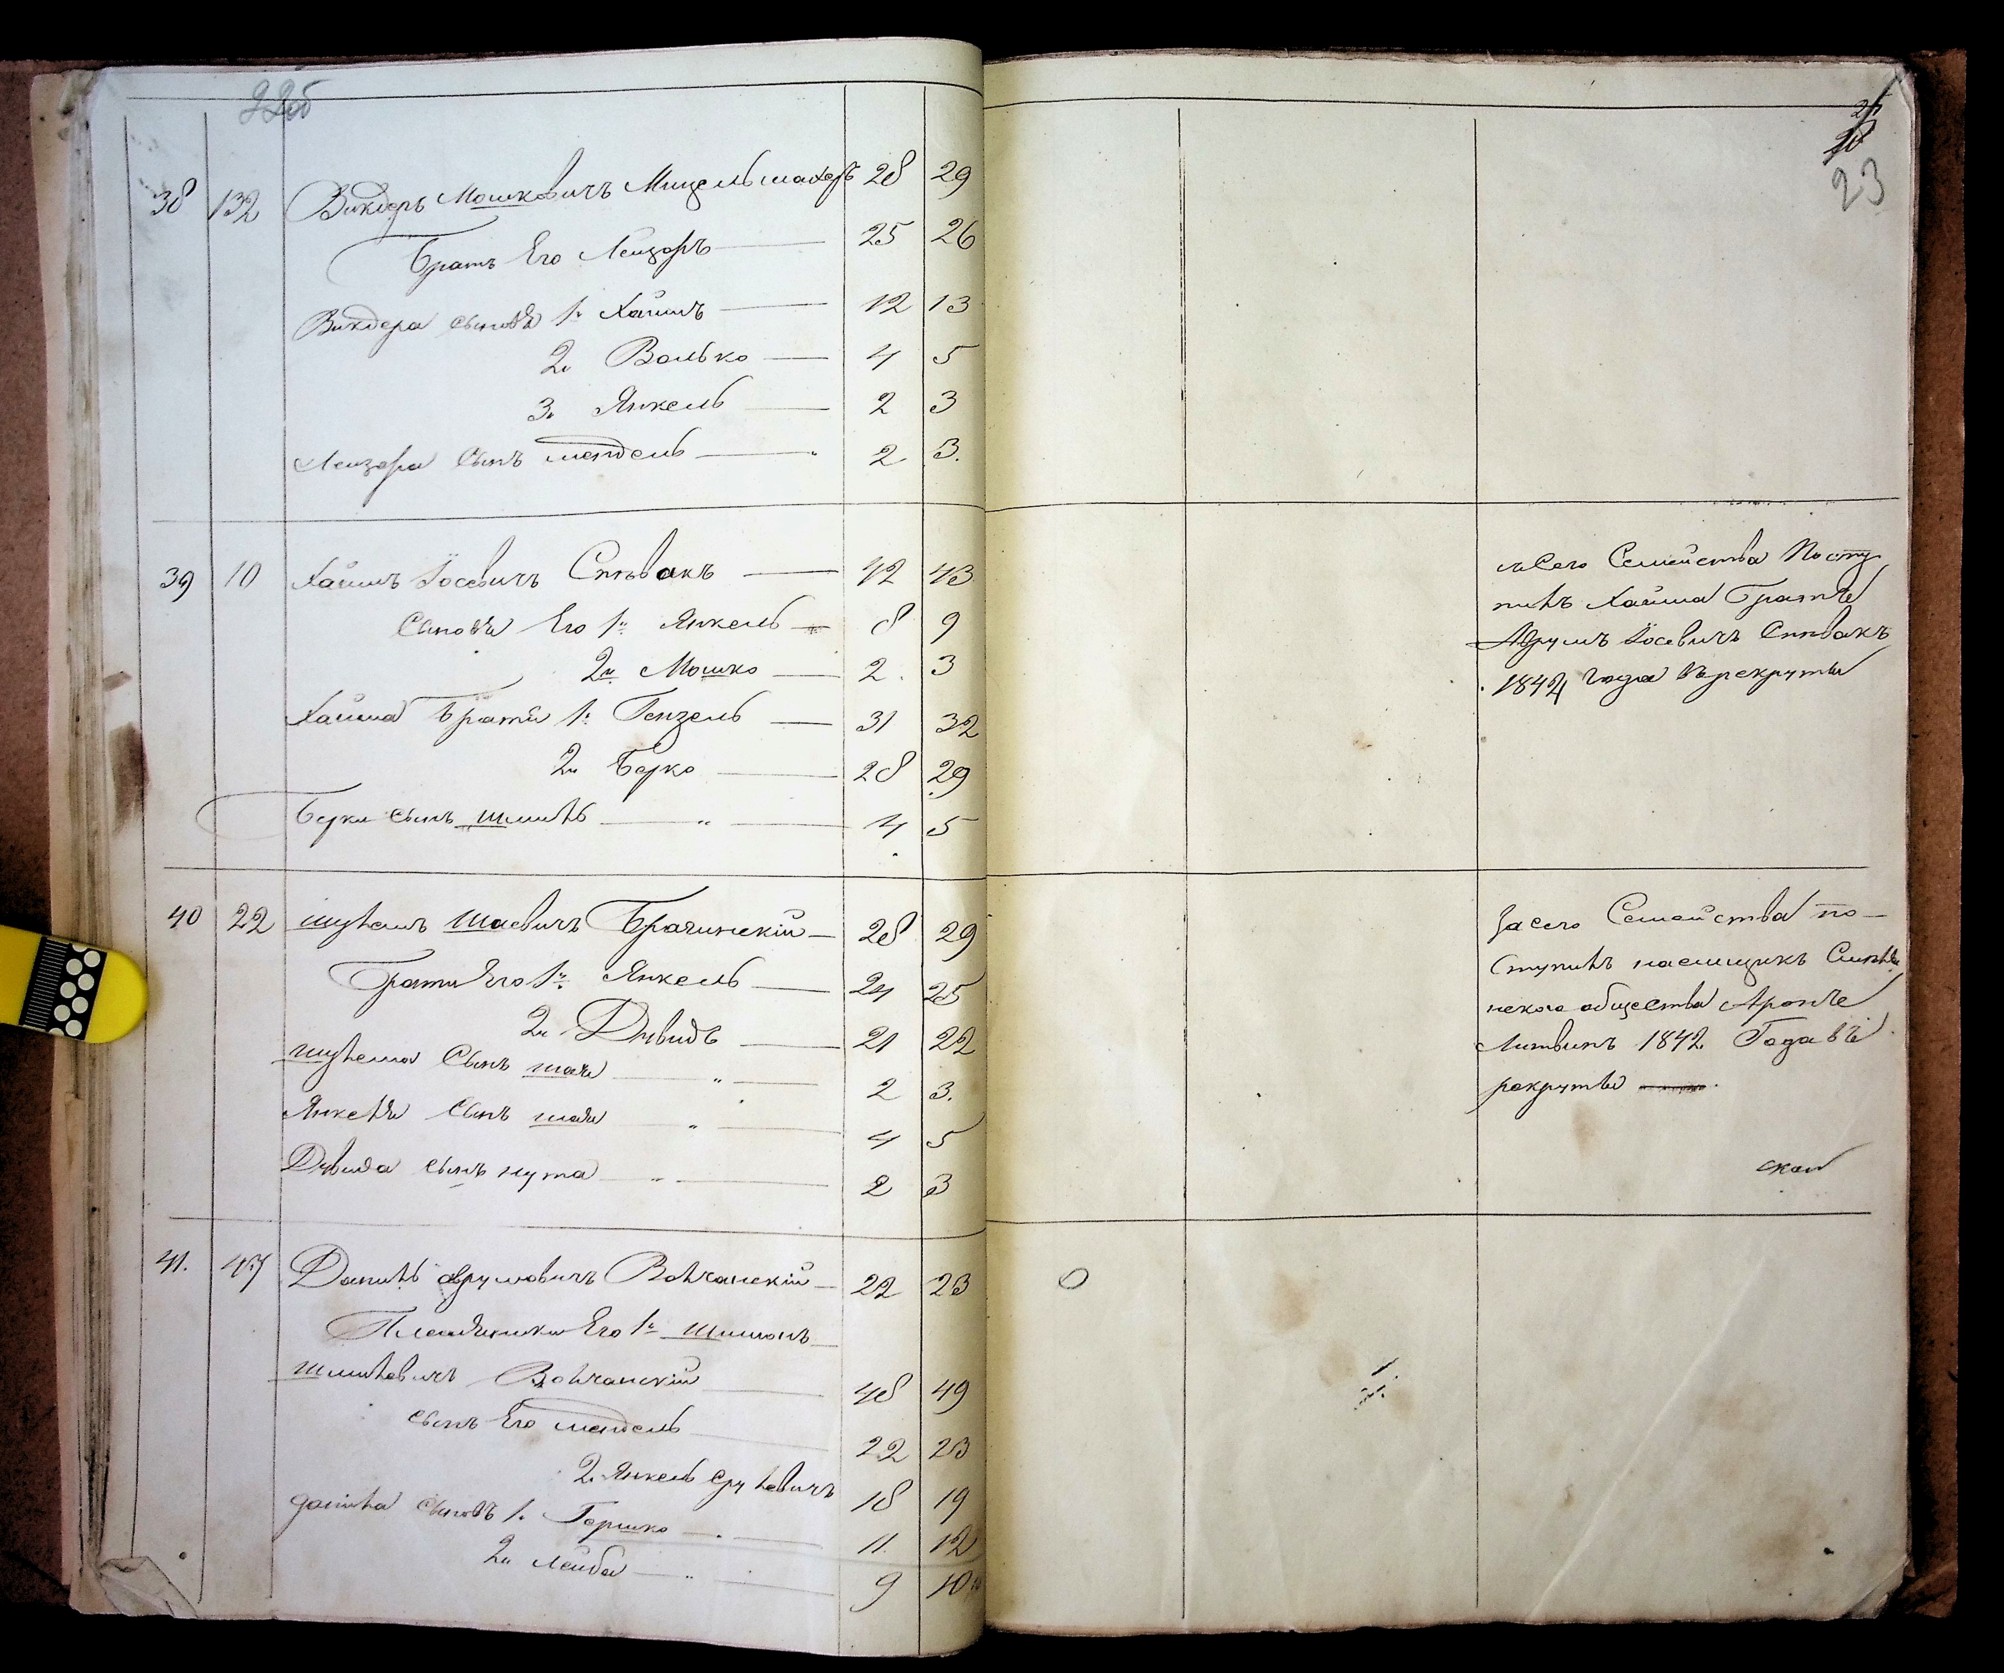 22об
38 132 Викдеръ Мошковичъ Мицельмахеръ 28 29
Братъ Его Лейзоръ 25 26
Викдера сыновя 1й Хаимъ 12 13
2й Волько 4 5
3й Янкель 2 3
Лейзора Сынъ мендель 2 3.
39 10 Хаимъ Іосевичъ Спивакъ 42 43
Сыновя Его 1й Янкель 8 9
2й Мошко 2 3
Хаима Братя 1й Гензель 31 32
2й Берко 28 29
Берки сынъ шмиль 4 5
40 22 шулемъ шаевичъ Брагинскій 28 29
Братя Его 1й Янкель 24 25
2й Дувидъ 21 22
шулема Сынъ шая 2 3.
Янкеля Сынъ шая 4 5
Дувида сынъ нута 2 3
41. 47 Даниль аврумовичъ Волчанскій 22 23
Племянники Его 1й шимонъ
шмилевичъ Волчанскій 48 49
сынъ Его мендель 22 23
2й Янкель срулевичъ 18 19
данила сыновъ 1й Гершко 11. 12
2й Лейба 9 10
23
съ Сего Семейства Посту
пилъ Хаима Братъ
Аврумъ Іосевичъ Спивакъ
1842 года въ рекруты
За сего Семейства по-
ступилъ наемщикъ
общества Аронъ
Литвинъ 1842 Года въ
рекруты